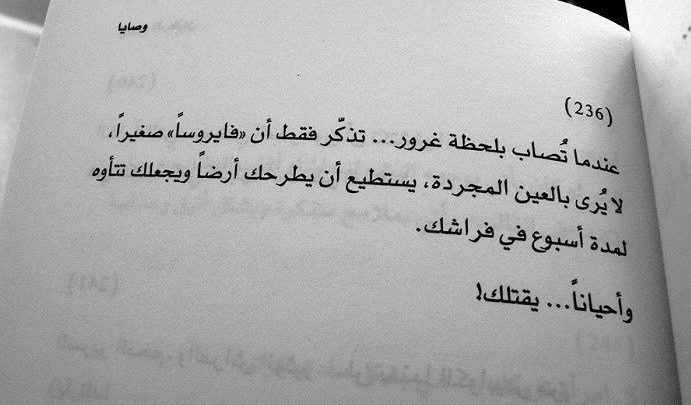 وصايا
(236)
عندما تُصاب بلحظة غرور... تذكّر فقط أن «فايروساً» صغيراً،
لا يُرى بالعين المجردة، يستطيع أن يطرحك أرضاً ويجعلك تتأوه
لمدة أسبوع في فراشك.
وأحياناً... يقتلك!